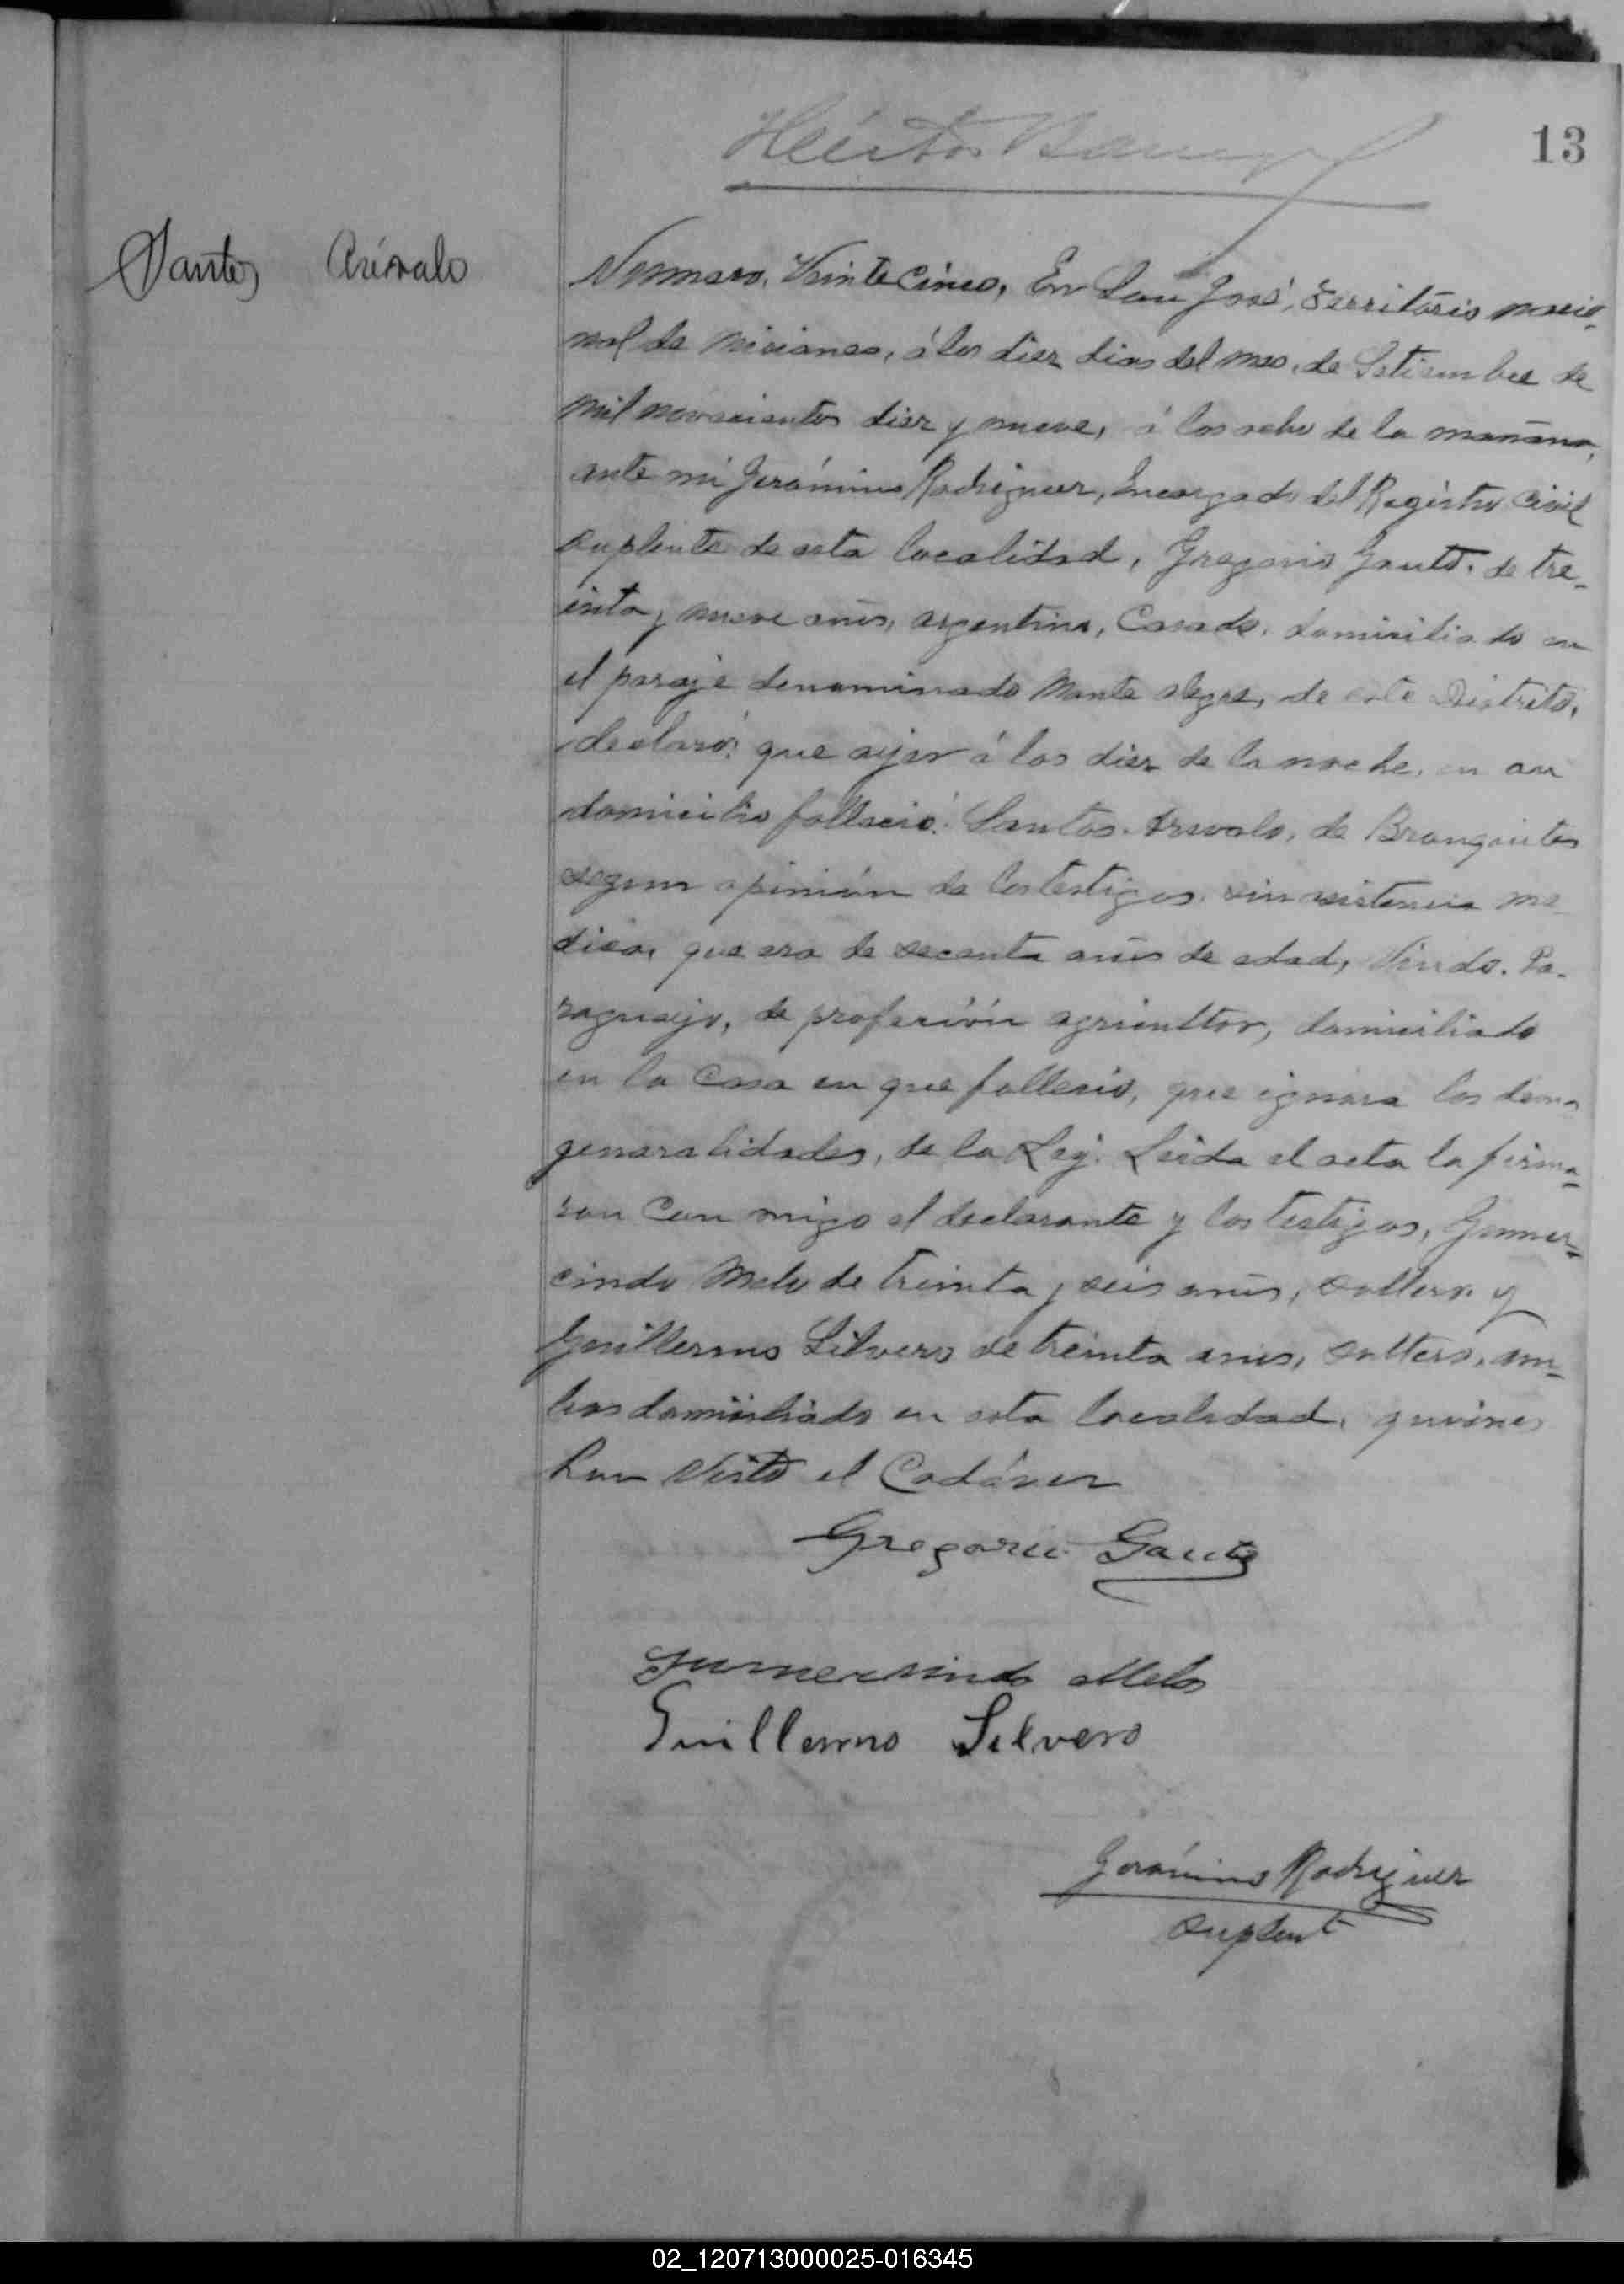 13
Santos Arévalo
Numero, Veinte Cinco, En San José, Território nacio-
nal de Misiones, á los diez dias del mes, de Setiembre de
mil novecientos diez y nueve, á las ocho de la mañana,
ante mi Jerónimo Rodriguez, Encargado del Registro Civil
suplente de esta localidad, Gregorio Gauto. de tre-
inta y nueve años, argentino, Casado, domiciliado en
el paraje denominado Monte alegre, de este Distrito,
declaró: que ayer á las diez de la noche, en su
domicilio falleció: Santos Arevalo, de Bronquites
segun opinión de los testigos. sin asistencia me
dica, que era de secenta años de edad, Viudo. Pa-
raguayo, de profesión agricultor, domiciliado
en la Casa en que fallecio, que ignora las demas
generalidades, de la Ley. Leida el acta la firma-
ron Con migo el declarante y los testigos, Gumer-
cindo Melo de treinta y seis años, soltero y
Guillermo Silvero de treinta años, soltero, am-
bos domiciliado en esta localidad, quienes
han Visto el Cadáver
Gregorio Gauto
Gumersindo Melo
Guillermo Silvero
Gerónimo Rodriguez
Suplent
02_120713000025-016345